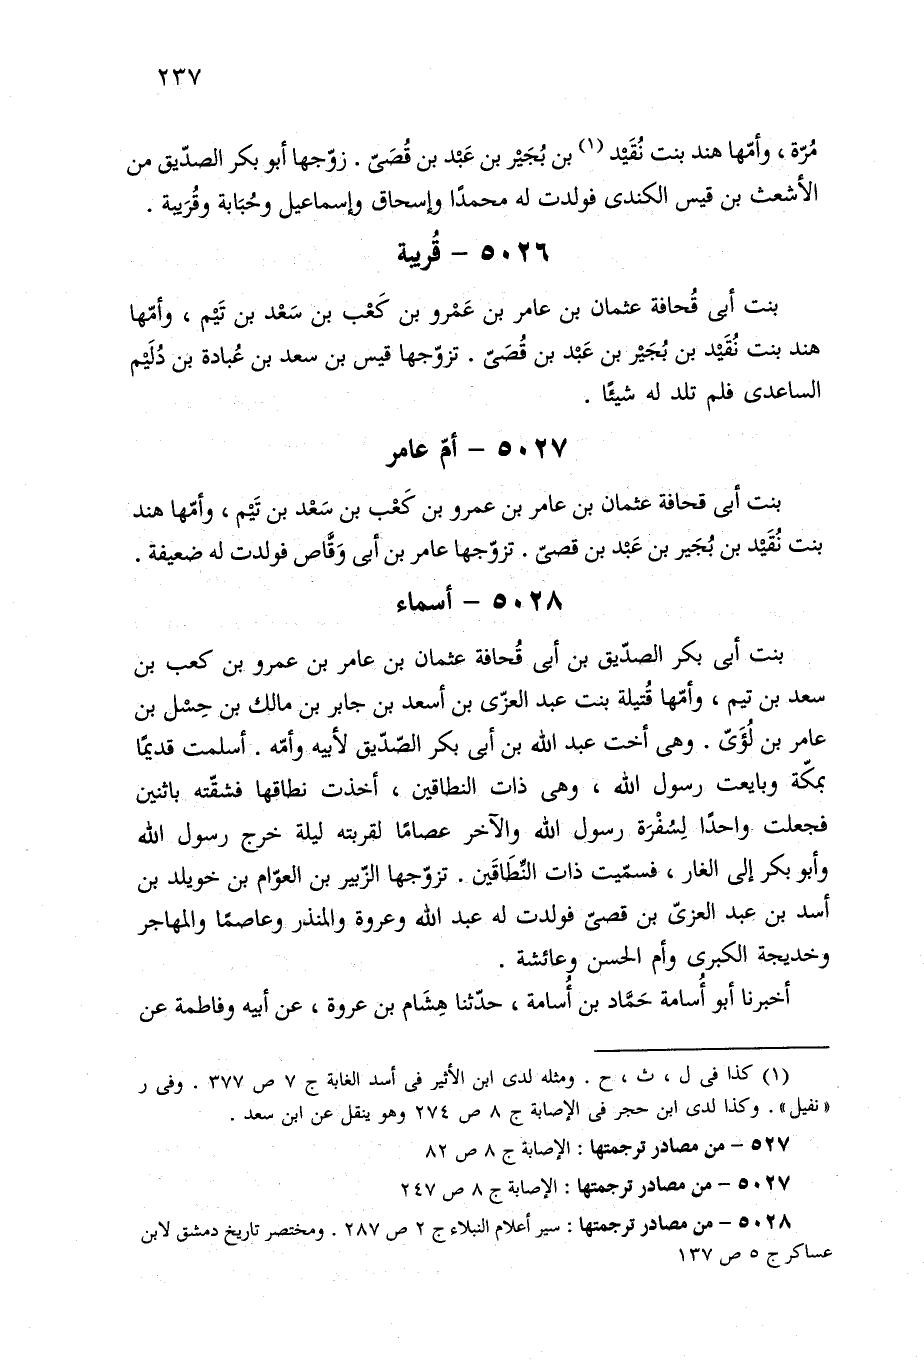 ٢٣٧
مُرّة ، وأمّها هند بنت نُقَيْد (١) بن بُجَيْر بن عَبْد بن قُصَىّ . زوّجها أبو بكر الصدّيق من
الأشعث بن قيس الكندى فولدت له محمدًا وإسحاق وإسماعيل وحُبَابة وقُرَيبة .
٥٠٢٦ – قُريبة
بنت أبى قُحافة عثمان بن عامر بن عَمْرو بن كَعْب بن سَعْد بن تَيْم ، وأمّها
هند بنت نُقَيْد بن بُجَيْر بن عَبْد بن قُصَىّ . تزوّجها قيس بن سعد بن عُبادة بن دُلَيْم
الساعدى فلم تلد له شيئًا .
٥٠٢٧ – أمّ عامر
بنت أبى قحافة عثمان بن عامر بن عمرو بن كَعْب بن سَعْد بن تَيْم ، وأمّها هند
بنت نُقَيْد بن بُجَير بن عَبْد بن قصىّ . تزوّجها عامر بن أبى وَقَّاص فولدت له ضعيفة .
٥٠٢٨ – أسماء
بنت أبى بكر الصدّيق بن أبى قُحافة عثمان بن عامر بن عمرو بن كعب بن
سعد بن تيم ، وأمّها قُتيلة بنت عبد العزّى بن أسعد بن جابر بن مالك بن حِسْل بن
عامر بن لُؤَىّ . وهى أخت عبد الله بن أبى بكر الصّدّيق لأبيه وأمّه . أسلمت قديمًا
بمكّة وبايعت رسول الله ، وهى ذات النطاقين ، أخذت نطاقها فشقّته باثنين
فجعلت واحدًا لِسُفْرَة رسول الله والآخر عصامًا لقربته ليلة خرج رسول الله
وأبو بكر إلى الغار ، فسمّيت ذات النِّطَاقَين . تزوّجها الزّبير بن العوّام بن خويلد بن
أسد بن عبد العزىّ بن قصىّ فولدت له عبد الله وعروة والمنذر وعاصمًا والمهاجر
وخديجة الكبرى وأم الحسن وعائشة .
أخبرنا أبو أُسامة حَمَّاد بن أُسامة ، حدّثنا هِشَام بن عروة ، عن أبيه وفاطمة عن
(١) كذا فى ل ، ث ، ح . ومثله لدى ابن الأثير فى أسد الغابة ج ٧ ص ٣٧٧ . وفى ر
«نفيل» . وكذا لدى ابن حجر فى الإصابة ج ٨ ص ٢٧٤ وهو ينقل عن ابن سعد .
٥٢٧ – من مصادر ترجمتها : الإصابة ج ٨ ص ٨٢
٥٠٢٧ – من مصادر ترجمتها : الإصابة ج ٨ ص ٢٤٧
٥٠٢٨ – من مصادر ترجمتها : سير أعلام النبلاء ج ٢ ص ٢٨٧ . ومختصر تاريخ دمشق لابن
عساكر ج ٥ ص ١٣٧